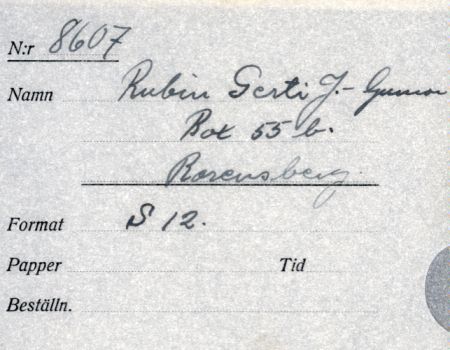 N:r 8607
Namn Rubin Gerti J.- Gunnar
Box 55 b.
Rorensberg.
Format S 12.
Papper Tid
Beställn.